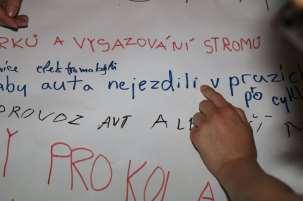 RKŮ A VYSAZOVÁNÍ STROMŮ
elektromobily
aby auta nejezdili v pruzích
pto cykl
PROVOZ AUT A
Y PROKOLA